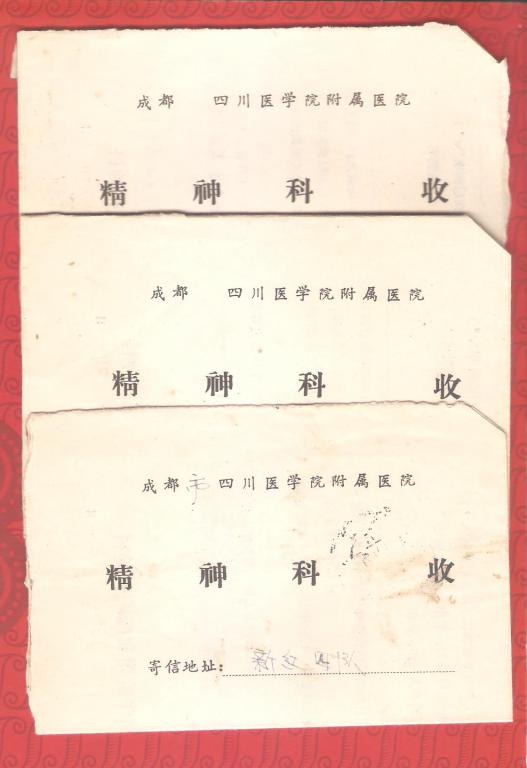 成都 四川医学院附属医院
精 神 科 收
成都 四川医学院附属医院
精 神 科 收
成都市四川医学院附属医院
精 神 科 收
寄信地址: